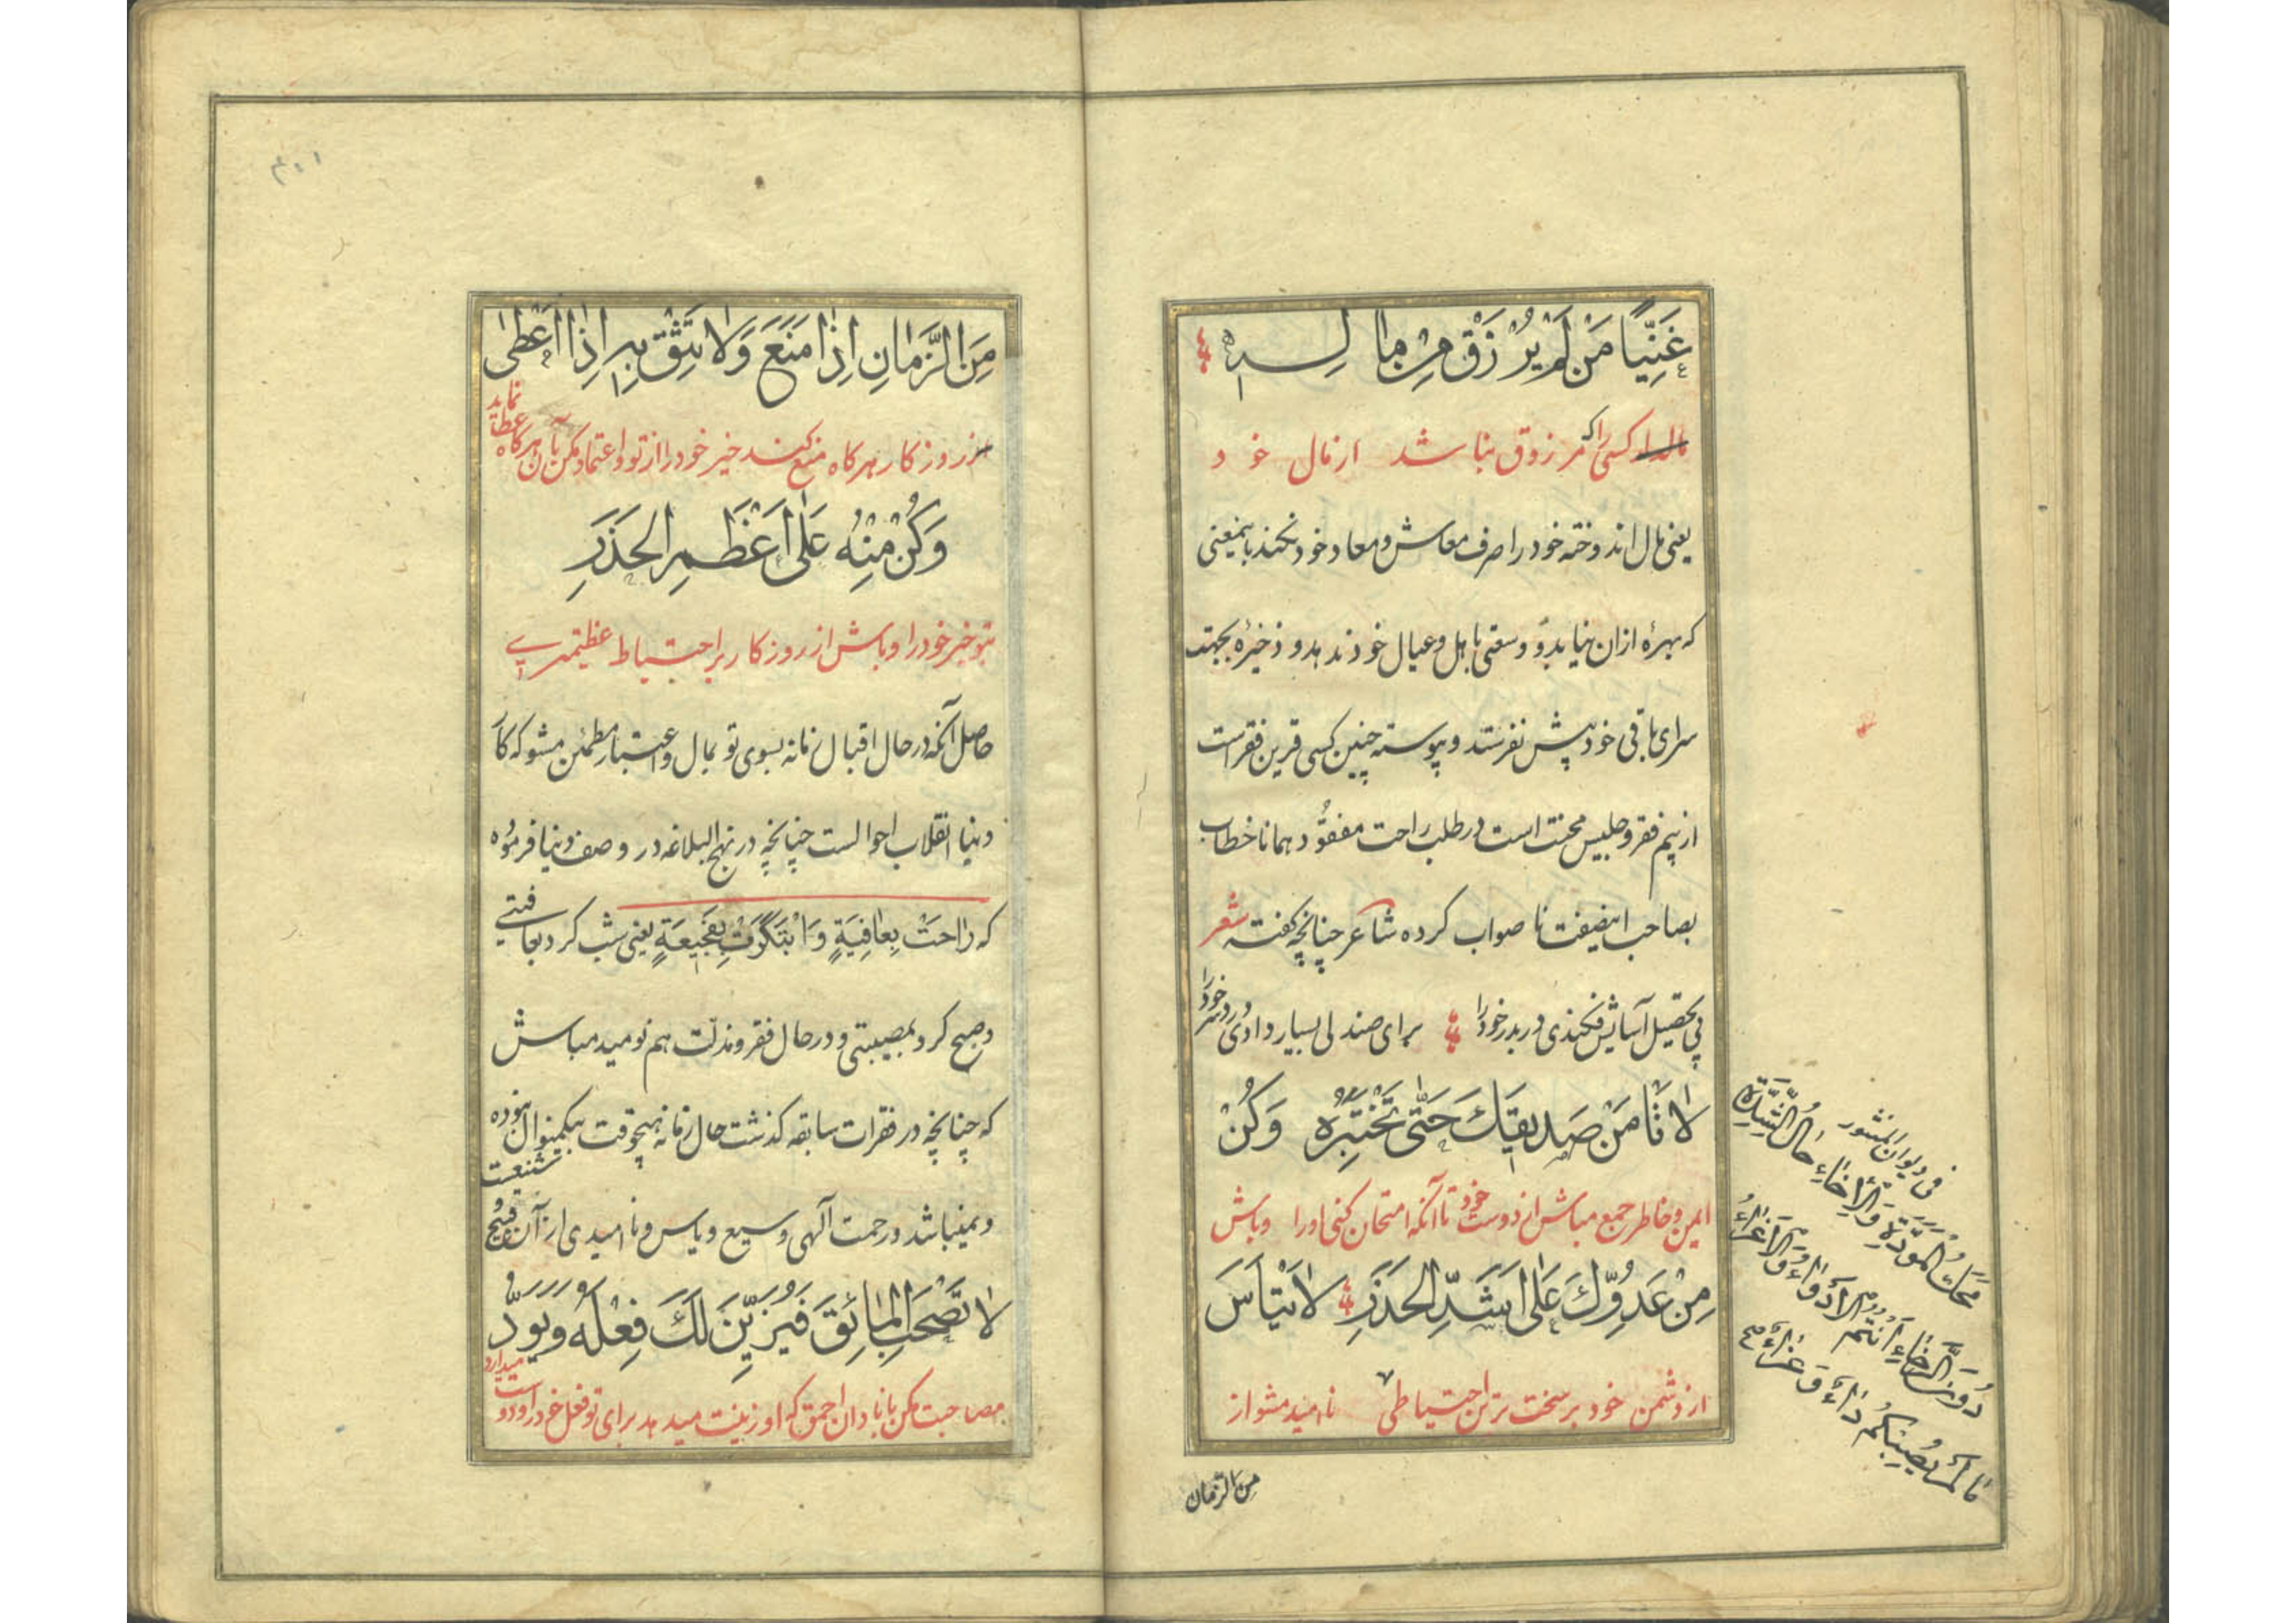 غَنِيًّا مَنْ لَمْ يُرْزَقْ مِنْ مالِـــهِ
مالدار کسی را که مرزوق نباشد از مال خود
یعنی مال اندوخته خود را صرف معاش و معاد خود نکند باینمعنی
که بهرهٔ ازان نیابد و وسعتی باهل و عیال خود ندهد و ذخیرهٔ بجهت
سرای باقی خود پیش نفرستد و پیوسته چنین کسی قرین فقر است
از بیم فقر و جلیس محنت است در طلب راحت مفقود همانا خطاب
بصاحب اینصفت نا صواب کرده شاعر چنانچه کفته شعر
پی تحصیل آسایش فکندی در بدر خود را برای صندلی بسیار دادی درد سر خود را
لا تَأمَنْ صَدیقَكَ حَتّٰی تَخْتَبِرَهُ وَكُنْ
ایمن و خاطر جمع مباش از دوست خود تا آنکه امتحان کنی او را و باش
مِنْ عَدُوِّكَ عَلٰی اَشَدِّ الحَذَرِ لا تَیْأَسَ
از دشمن خود بر سخت ترین احتیاطی نا امید مشو از
من الزمان
فی دیوان المنشور
مَحَكُّ المَوَدَّةِ وَالْاِخاءِ حالُ الشِّدَّةِ
دُونَ الرَّخاءِ اَنْتُمُ الْاَوِدّاءُ وَالْاَعِزّاءُ
مٰا لَمْ یُصِبْكُمْ
۳۰۱
مِنَ الزَّمانِ اِذا مَنَعَ وَلا تَثِقْ بِهِ اِذا اَعْطٰی
از روزکار هرکاه منع کند خیر خود را از تو و اعتماد مکن بآن هرکاه عطا نماید
وَكُنْ مِنْهُ عَلٰی اَعْظَمِ الحَذَرِ
بتو خیر خود را و باش از روزکار بر احتیاط عظیمتری
حاصل آنکه در حال اقبال زمانه بسوی تو بمال و اعتبار مطمئن مشو که کار
دنیا انقلاب احوالست چنانچه در نهج البلاغه در وصف دنیا فرموده
که راحَتْ بِعافِیَةٍ وَابْتَكَرَتْ بِفَجیعَةٍ یعنی شب کرد بعافیتی
و صبح کرد بمصیبتی و در حال فقر و مذلت هم نومید مباش
که چنانچه در فقرات سابقه کذشت حال زمانه هیچوقت بیکمنوال نبوده
و نمیباشد و رحمت آلهی وسیع و یاس و نا امیدی از آن قبیح و شنیعست
لا تَصْحَبِ المائِقَ فَیُزَیِّنَ لَكَ فِعْلَهُ وَیَوَدُّ
مصاحبت مکن با نادان احمق که او زینت میدهد برای تو فعل خود را و دوست میدارد